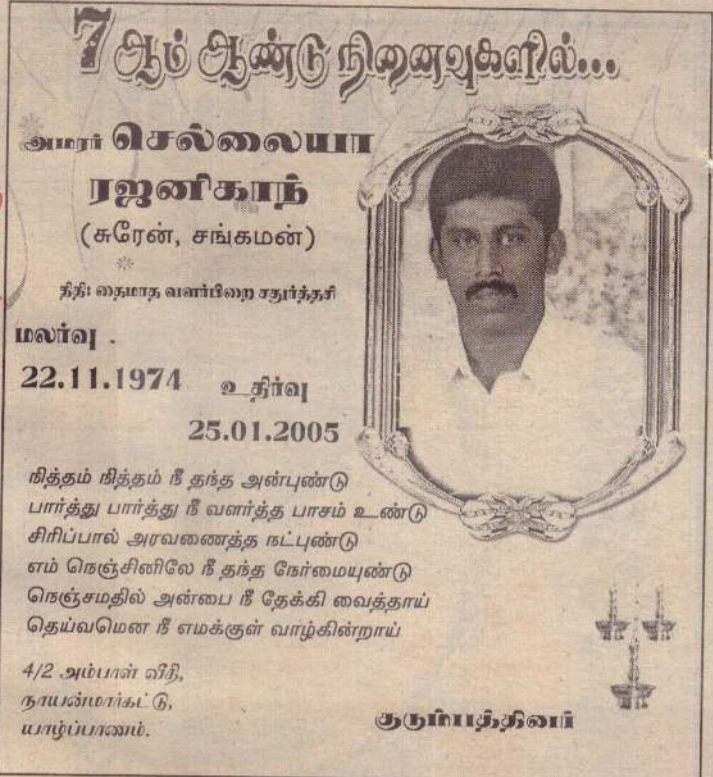 7 ஆம் ஆண்டு நினைவுகளில்...
அமரர் செல்லையா
ரஜனிகாந்
(சுரேன், சங்கமன்)
திதி: தைமாத வளர்பிறை சதுர்த்தசி
மலர்வு .
22.11.1974 உதிர்வு
25.01.2005
நித்தம் நித்தம் நீ தந்த அன்புண்டு
பார்த்து பார்த்து நீ வளர்த்த பாசம் உண்டு
சிரிப்பால் அரவணைத்த நட்புண்டு
எம் நெஞ்சினிலே நீ தந்த நேர்மையுண்டு
நெஞ்சமதில் அன்பை நீ தேக்கி வைத்தாய்
தெய்வமென நீ எமக்குள் வாழ்கின்றாய்
4/2 அம்பாள் வீதி,
நாயன்மார்கட்டு,
யாழ்ப்பாணம்.
குடும்பத்தினர்